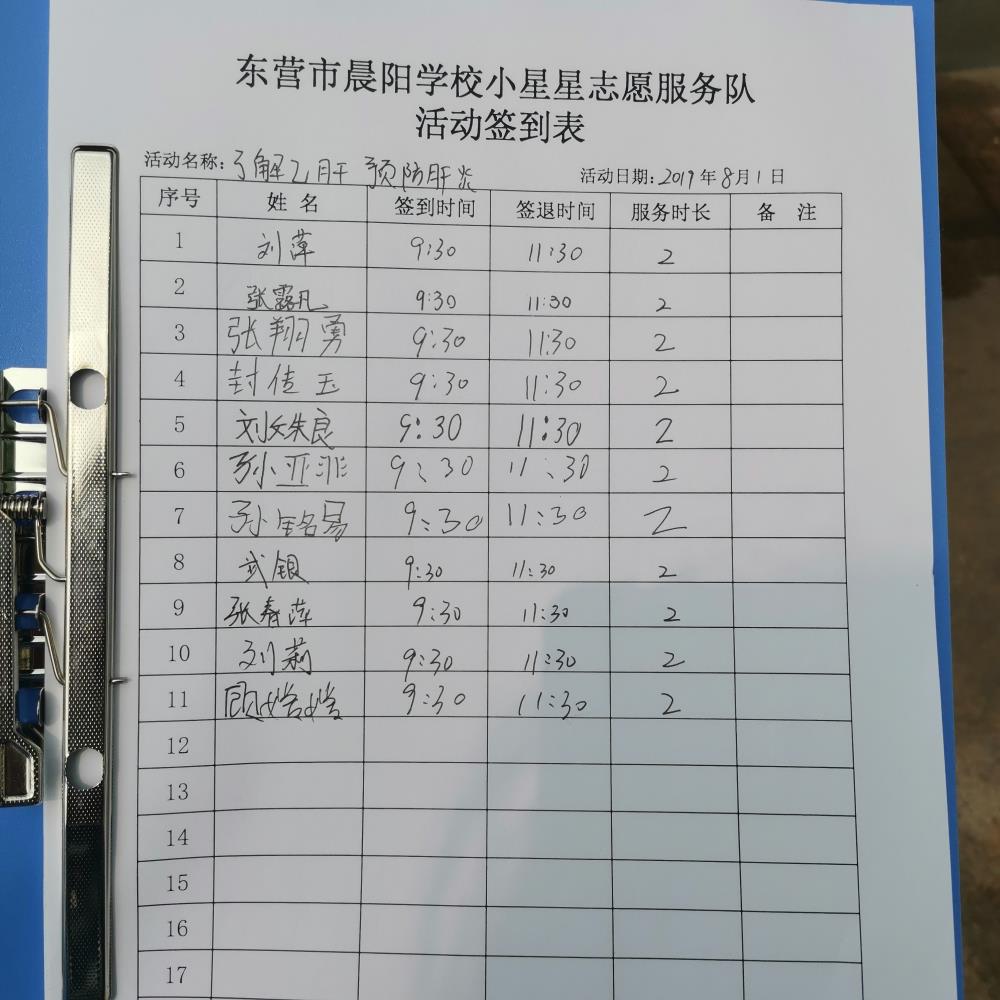 东营市晨阳学校小星星志愿服务队
活动签到表
活动名称：了解乙肝 预防肝炎 活动日期：2019年8月1日
序号 姓名 签到时间 签退时间 服务时长 备注
1 刘萍 9:30 11:30 2
2 张露凡 9:30 11:30 2
3 张翔勇 9:30 11:30 2
4 封传玉 9:30 11:30 2
5 刘姝良 9:30 11:30 2
6 孙亚菲 9:30 11:30 2
7 孙铭易 9:30 11:30 2
8 武银 9:30 11:30 2
9 张春萍 9:30 11:30 2
10 刘莉 9:30 11:30 2
11 顾 9:30 11:30 2
12
13
14
15
16
17